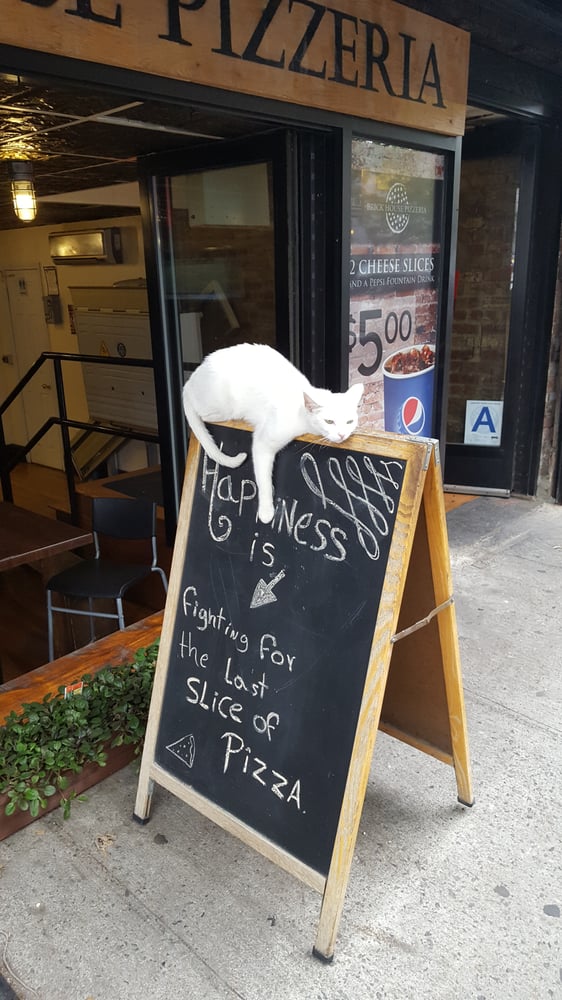 PIZZERIA
BRICK HOUSE PIZZERIA
2 CHEESE SLICES
AND A PEPSI FOUNTAIN DRINK
$5.00
A
Happiness
is
fighting for
the Last
SLice of
Pizza.